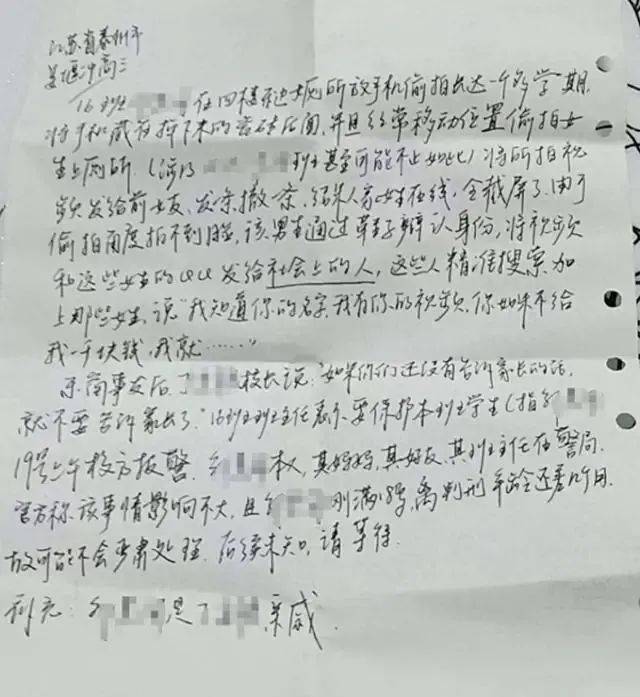 江苏省泰州市
姜堰中高三
16班 在四楼东边女厕所放手机偷拍长达一个多学期,
将手机藏在掉下来的瓷砖后面,并且经常移动位置偷拍女
生上厕所.(涉及 班甚至可能不止如此)将所拍视
频发给前女友,发条撤一条,结果人家女生在线,全截屏了.由于
偷拍角度拍不到脸,该男生通过鞋子辩认身份,将视频
和这些女生的QQ发给社会上的人,这些人精准搜索加
上那些女生,说"我知道你的名字,我有你的视频.你如果不给
我一千块钱,我就……"
东窗事发后,丁 校长说:"如果你们还没有告诉家长的话,
就不要告诉家长了."16班班主任表示要保护本班学生(指
19号上午校方报警. 本人,其妈妈,其好友,其班主任在警局.
官方称,该事情影响不大,且 刚满18岁,离判刑年龄还差几个月.
故可能不会严肃处理.后续未知,请等待.
补充: 是丁 亲戚.